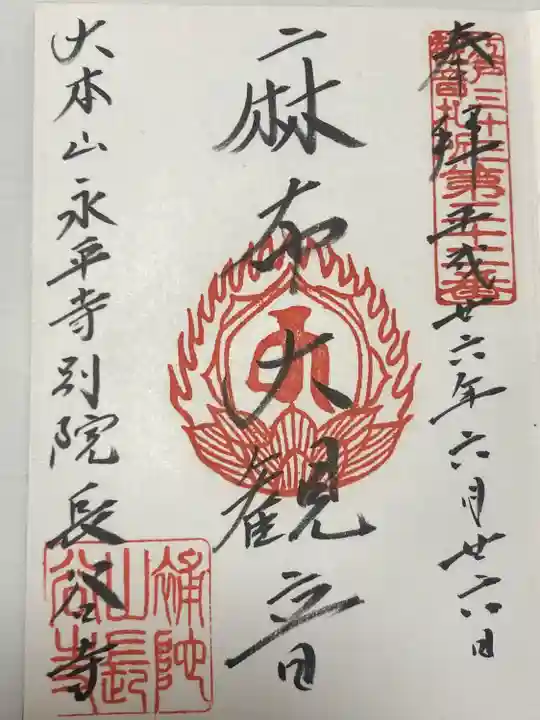 奉拝 平成廿六年六月廿六日
江戸三十三ヶ所
観音札所第二十二番
麻布大観音
大本山永平寺別院長谷寺
補陀
山長
谷寺